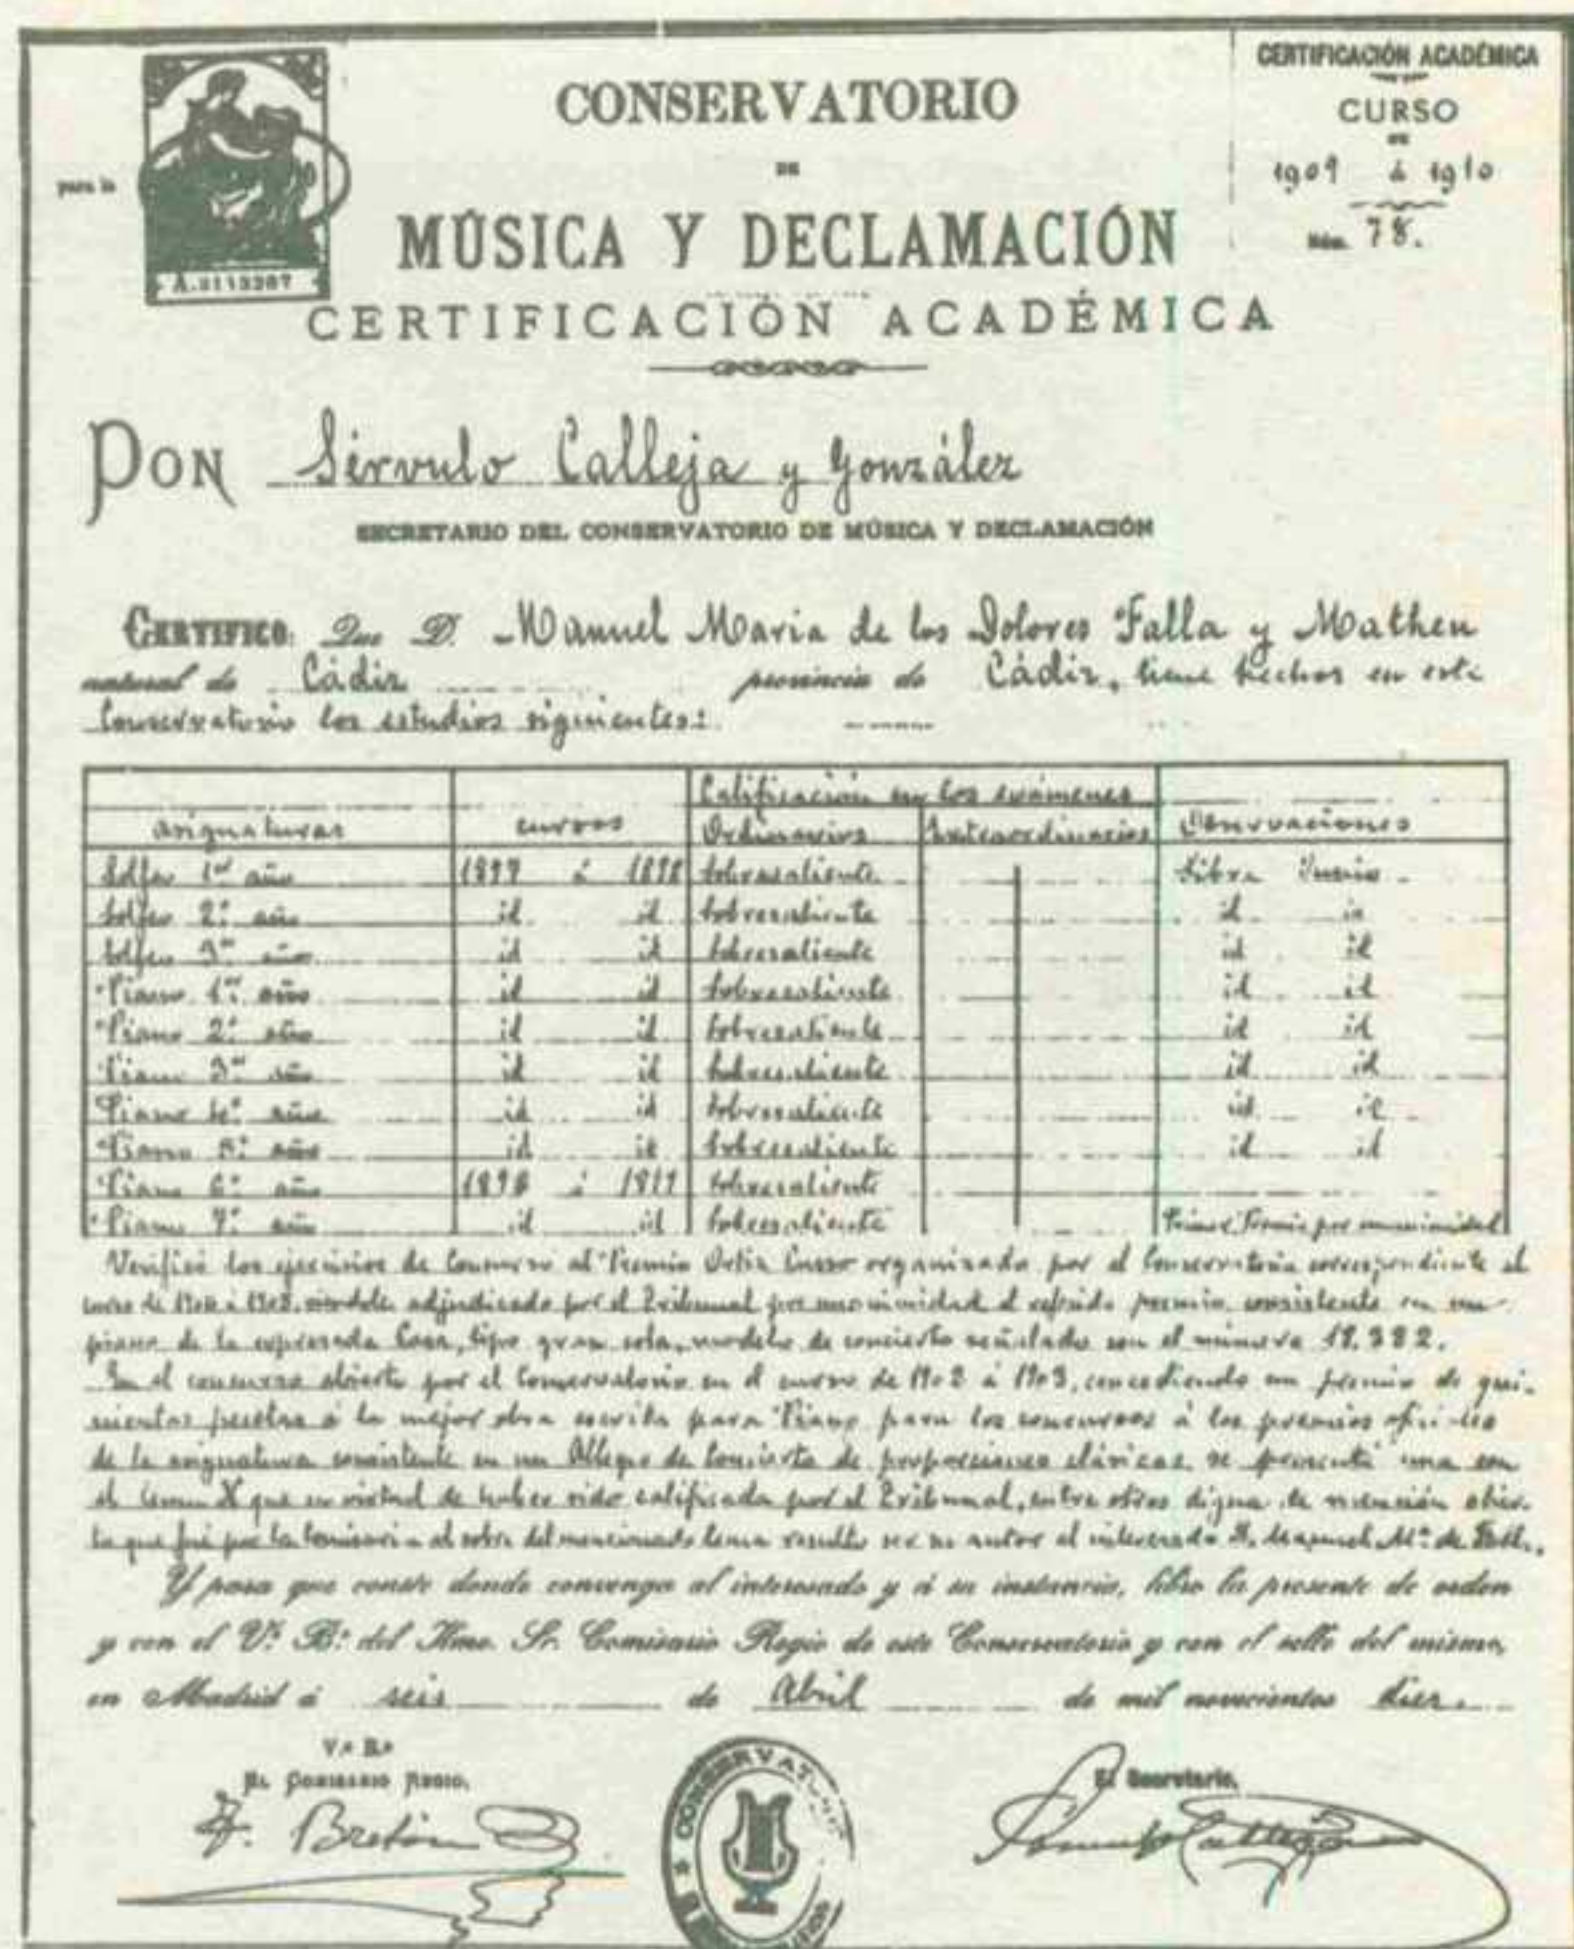 CERTIFICACIÓN ACADÉMICA
CURSO
DE
1909 á 1910
Núm. 78.
para la
A.2113207
CONSERVATORIO
DE
MÚSICA Y DECLAMACIÓN
CERTIFICACIÓN ACADÉMICA
DON Sérvulo Calleja y González
SECRETARIO DEL CONSERVATORIO DE MÚSICA Y DECLAMACIÓN
CERTIFICO: Que D. Manuel Maria de los Dolores Falla y Matheu
natural de Cádiz provincia de Cádiz, tiene hechos en este
Conservatorio los estudios siguientes:
Calificación en los exámenes
asignaturas cursos Ordinarios Extraordinarios Observaciones
Solfeo 1er año 1897 á 1898 Sobresaliente Libre Junio
Solfeo 2º año id id Sobresaliente id id
Solfeo 3er año id id Sobresaliente id id
Piano 1er año id id Sobresaliente id id
Piano 2º año id id Sobresaliente id id
Piano 3er año id id Sobresaliente id id
Piano 4º año id id Sobresaliente id id
Piano 5º año id id Sobresaliente id id
Piano 6º año 1898 á 1899 Sobresaliente
Piano 7º año id id Sobresaliente Primer Premio por unanimidad
Verificó los ejercicios de Concurso al Premio Ortiz Cusso organizado por el Conservatorio correspondiente al
curso de 1904 á 1905, siendole adjudicado por el Tribunal por unanimidad el referido premio, consistente en un
piano de la expresada Casa, tipo gran cola, modelo de concierto señalado con el número 18.382.
En el concurso abierto por el Conservatorio en el curso de 1902 á 1903, concediendo un premio de qui-
nientas pesetas á la mejor obra escrita para Piano para los concursos á los premios oficiales
de la asignatura consistente en un Allegro de Concierto de proporciones clásicas, se presentó una con
el lema X que en virtud de haber sido calificada por el Tribunal, entre otras digna de mención abier-
to que fué por la Comisaria el sobre del mencionado lema resultó ser su autor el interesado D. Manuel Mª de Falla.
Y para que conste donde convenga al interesado y á su instancia, libro la presente de orden
y con el Vº Bº del Ilmo. Sr. Comisario Regio de este Conservatorio y con el sello del mismo,
en Madrid á seis de Abril de mil novecientos diez.
V.º B.º
EL COMISARIO REGIO,
T. Bretón
CONSERVATORIO
El Secretario,
Sérvulo Calleja